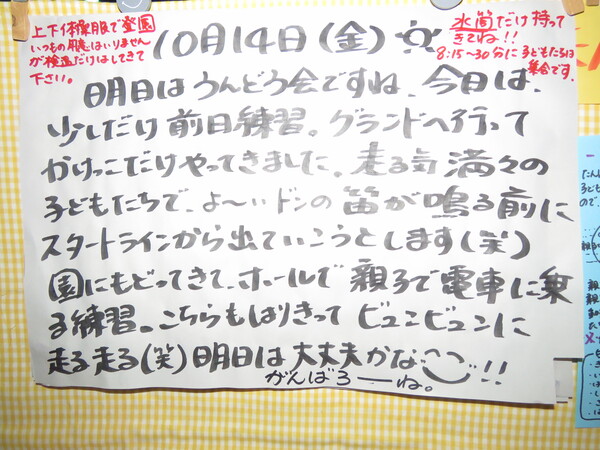 上下体操服で登園
いつもの用意はいりません
が検温だけはしてきて
下さい。
10月14日(金)
水筒だけ持って
きてね!!
8:15~30分に子どもたちは
集合です。
明日はうんどう会ですね。今日は、
少しだけ前日練習。グランドへ行って
かけっこだけやってきました。走る気満々の
子どもたちで、よ〜いドンの笛が鳴る前に
スタートラインから出ていこうとします(笑)
園にもどってきて、ホールで親子で電車に乗
る練習。こちらもはりきってビュンビュンに
走る走る(笑)明日は大丈夫かな!!
がんばろーね。